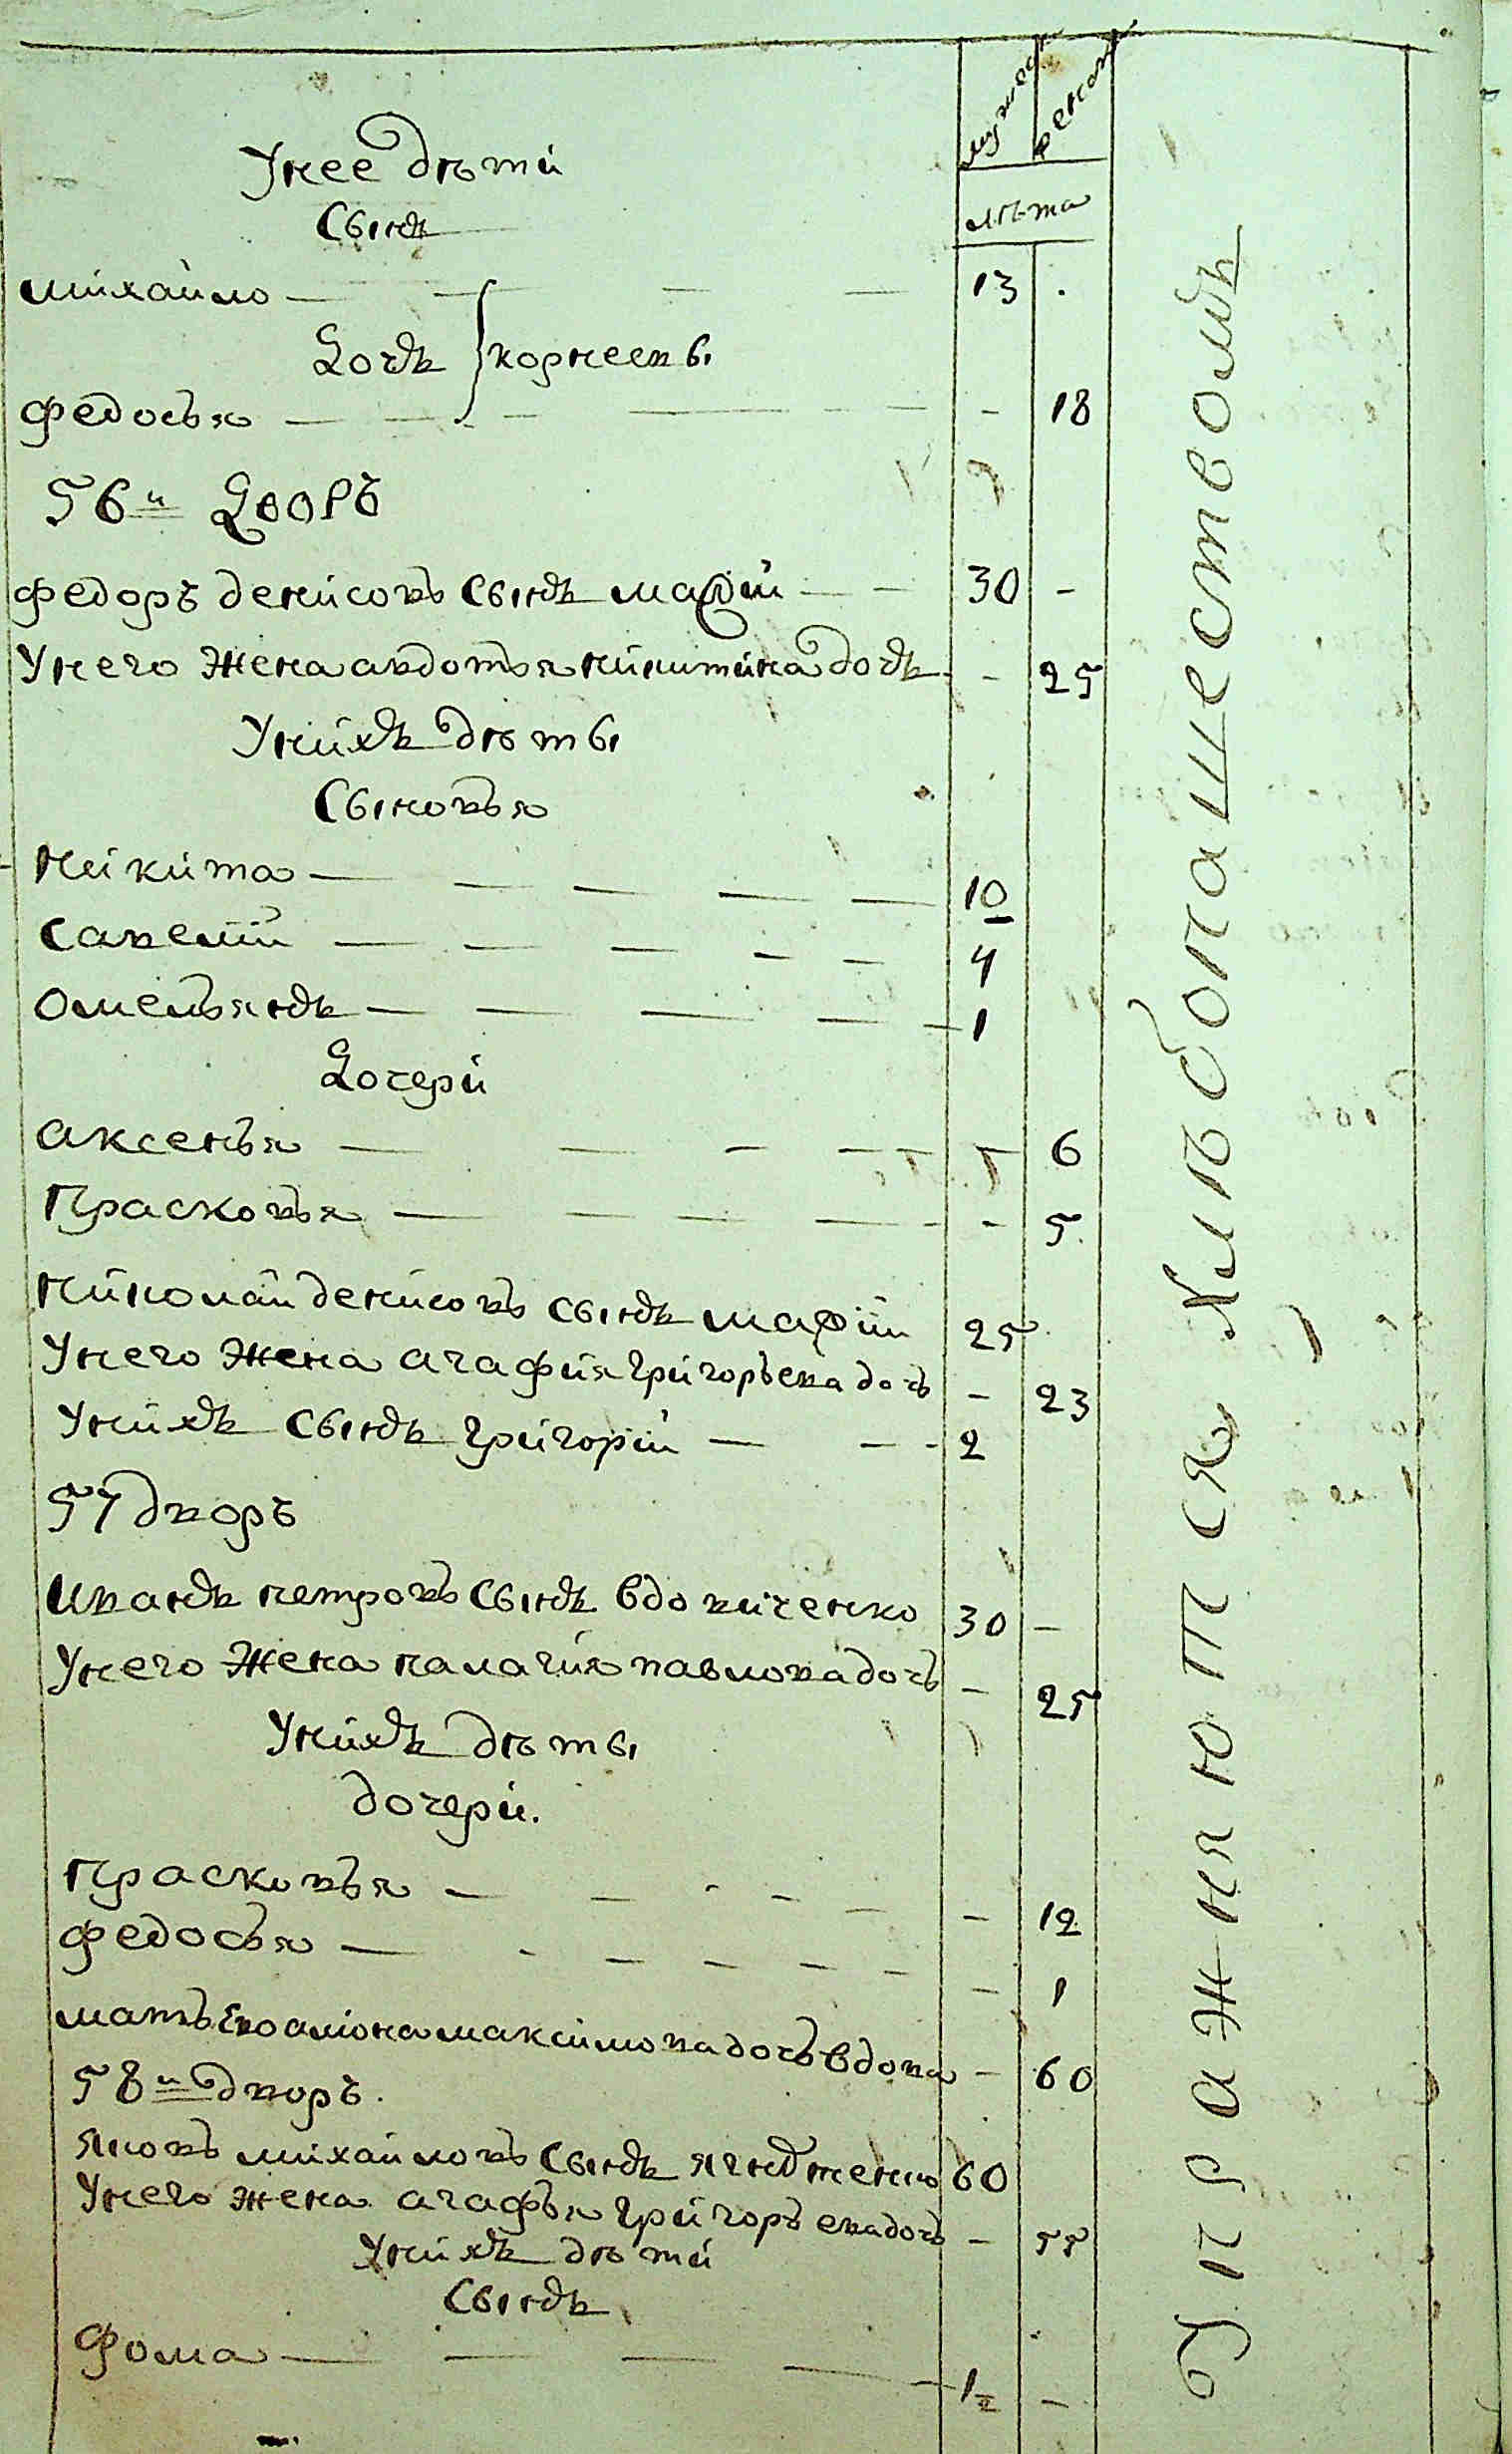 мужеск женск
лѣта
У нее дѣти
Сынъ
михайло 13
Дочъ } корнеевы
федосья 18
56й Дворъ
федоръ денисовъ сынъ малой 30
У него жена авдотья никитина дочъ 25
У нихъ дѣты
Сыновья
никита 10
савелий 4
омельянъ 1
Дочери
аксенья 6
Прасковья 5
николай денисовъ сынъ 25
У него жена агафия григорьева дочь 23
У нихъ сынъ григорий 2
57 дворъ
Иванъ петровъ сынъ вдовиченко 30
У него жена палагия павлова дочь 25
У нихъ дѣты
дочери.
Прасковья 12
федосья 1
мать ево алiона максимова дочь вдова 60
58й дворъ
Яковъ михайловъ сынъ 60
У него жена агафья григорьева дочь 55
У нихъ дѣти
Сынъ
Фома
Упражняютcя Хлѣбопашествомъ